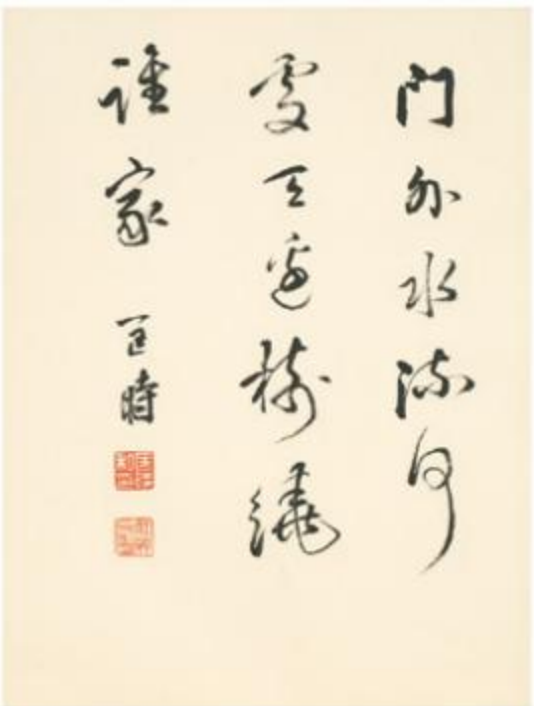 門外水流何
處天邊樹繞
誰家 匡時